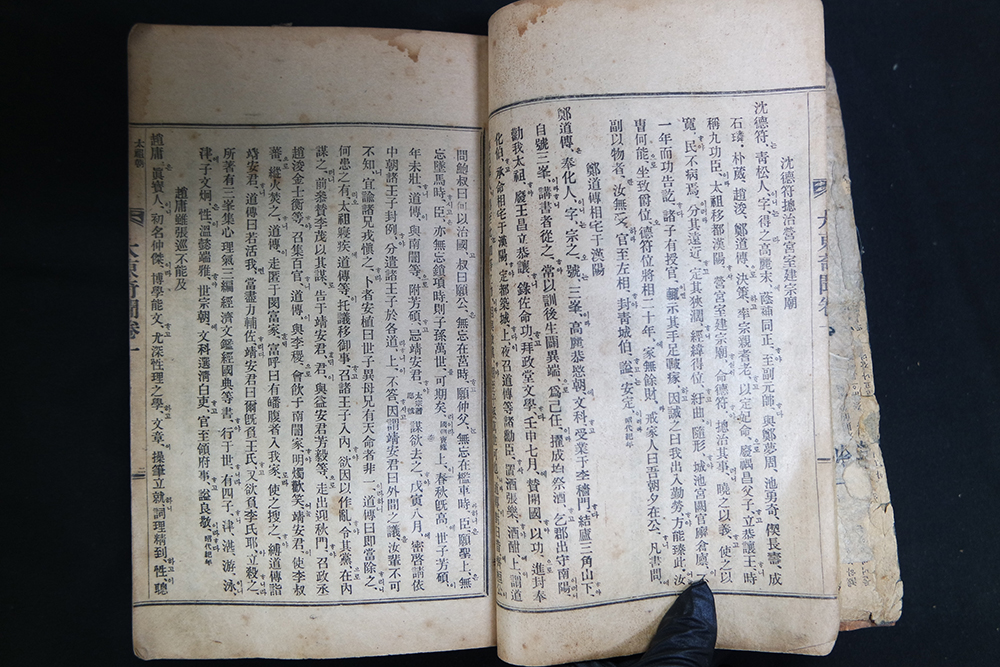 沈德符摠治營宮室建宗廟
沈德符、靑松人、字得之、高麗末、蔭補司正、至副元帥、與鄭夢周、池勇奇、偰長壽、成
石璘、朴葳、趙浚、鄭道傳、决策、率宗親耆老、以定妃命、廢禑昌父子、立恭讓王、時
稱九功臣、太祖移都漢陽、營宮室建宗廟、命德符、摠治其事、曉之以義、使之以
寬、民不病焉、分其遠近、定其狹濶、經緯得位、紆曲隨形、城池宮闕官廨倉廩、
一年而功告訖、諸子有授官、輒示其手足皸瘃、因誡之曰我出入勤勞、方能臻此、汝
曺何能坐致爵位、德符位將相二十年、家無餘財、戒家人曰吾朝夕在公、凡書問、
副以物者、汝無受、官至左相、封靑城伯、謚安定、昭代紀年
鄭道傳相宅于漢陽
鄭道傳、奉化人、字宗之、號三峯、高麗恭愍朝、文科、受業于李穡門、結廬三角山下、
自號三峯、講書者從之、常以訓後生闢異端、爲己任、擢成均祭酒、乞郡出守南陽、
勸我太祖、廢王昌立恭讓、錄佐命功、拜政堂文學、壬申七月、贊開國以功、進封奉
化伯、承命相宅于漢陽、定都築城、上夜召道傳等諸勳臣、置酒張樂、酒酣、上謂道
問鮑叔曰何以治國、叔曰願公無忘在莒時、願仲父、無忘在檻車時、臣願聖上無
忘墜馬時、臣亦無忘鎖項時則子孫萬世、可期矣、上春秋旣高、世子芳碩、
年未壯、道傳、與南誾等、附芳碩、忌靖安君、謀欲去之、戊寅八月、密啓請依
中朝諸王子封例、分遣諸王子於各道、上不答、因謂靖安君曰外間之議、汝輩不可
不知、宜諭諸兄戒愼之、卜者安植曰世子異母兄有天命者非一、道傳曰即當除之、
何患之有、太祖寢疾、道傳等、托議移御事、召諸王子入內、欲因以作亂、令其黨、在內
謀之、前叅贊李茂以其謀、告于靖安君、君與益安君芳毅等、走出迎秋門、召政丞
趙浚金士衡等、召集百官、道傳、與李稷、會飮于南誾家、明燭歡笑、靖安君、使李叔
蕃、縱火葵之、道傳、走匿于閔富家、富呼曰有皤腹者入我家、使之搜之、縛道傳詣
靖安君、道傳曰若活我、當盡力輔佐、靖安君曰爾旣負王氏、又欲負李氏耶、立殺之、
所著有三峯集心理氣三編經濟文鑑經國典等書、行于世、有四子、津、湛、游、泳、
津、子文炯、性、溫懿端雅、世宗朝、文科選淸白吏、官至領府事、謚良敬、昭代紀年
趙庸雖張巡不能及
趙庸、眞寶人、初名仲傑、博學能文、尤深性理之學、文章、操筆立就、詞理精到、性聰
太祖朝
大東奇聞卷一
大東奇聞卷一